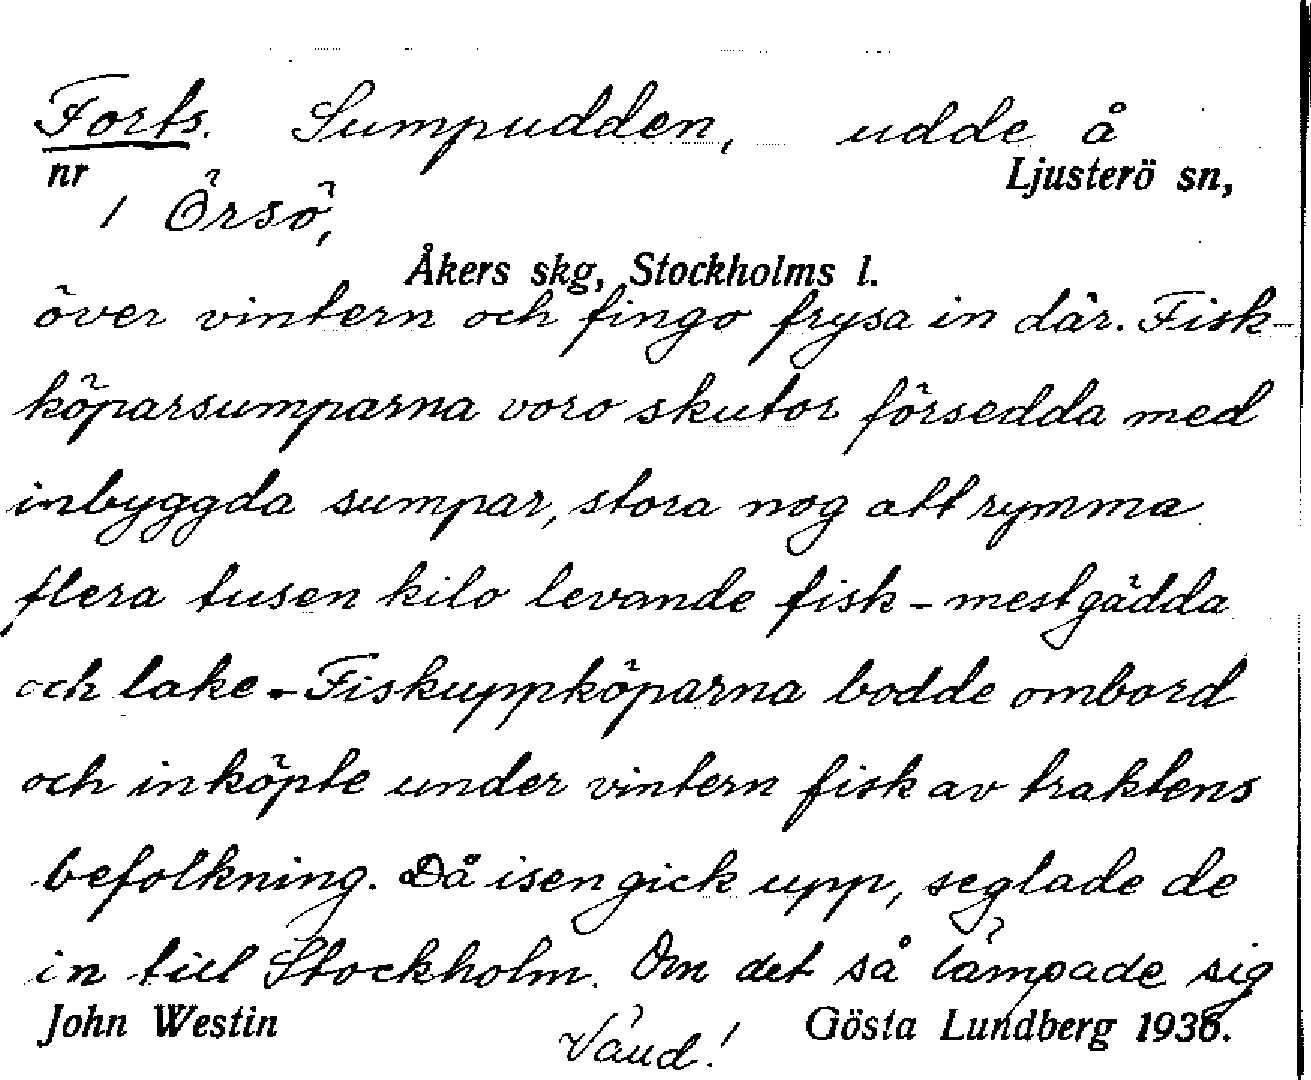 Forts. Sumpudden, udde å
nr Ljusterö sn,
1 Örsö,
Åkers skg, Stockholms l.
över vintern och fingo frysa in där. Fisk-
köparsumparna voro skutor försedda med
inbyggda sumpar, stora nog att rymma
flera tusen kilo levande fisk - mest gädda
och lake. - Fiskuppköparna bodde ombord
och inköpte under vintern fisk av traktens
befolkning. Då isen gick upp, seglade de
in till Stockholm. Om det så lämpade sig
John Westin Gösta Lundberg 1936.
Vänd!